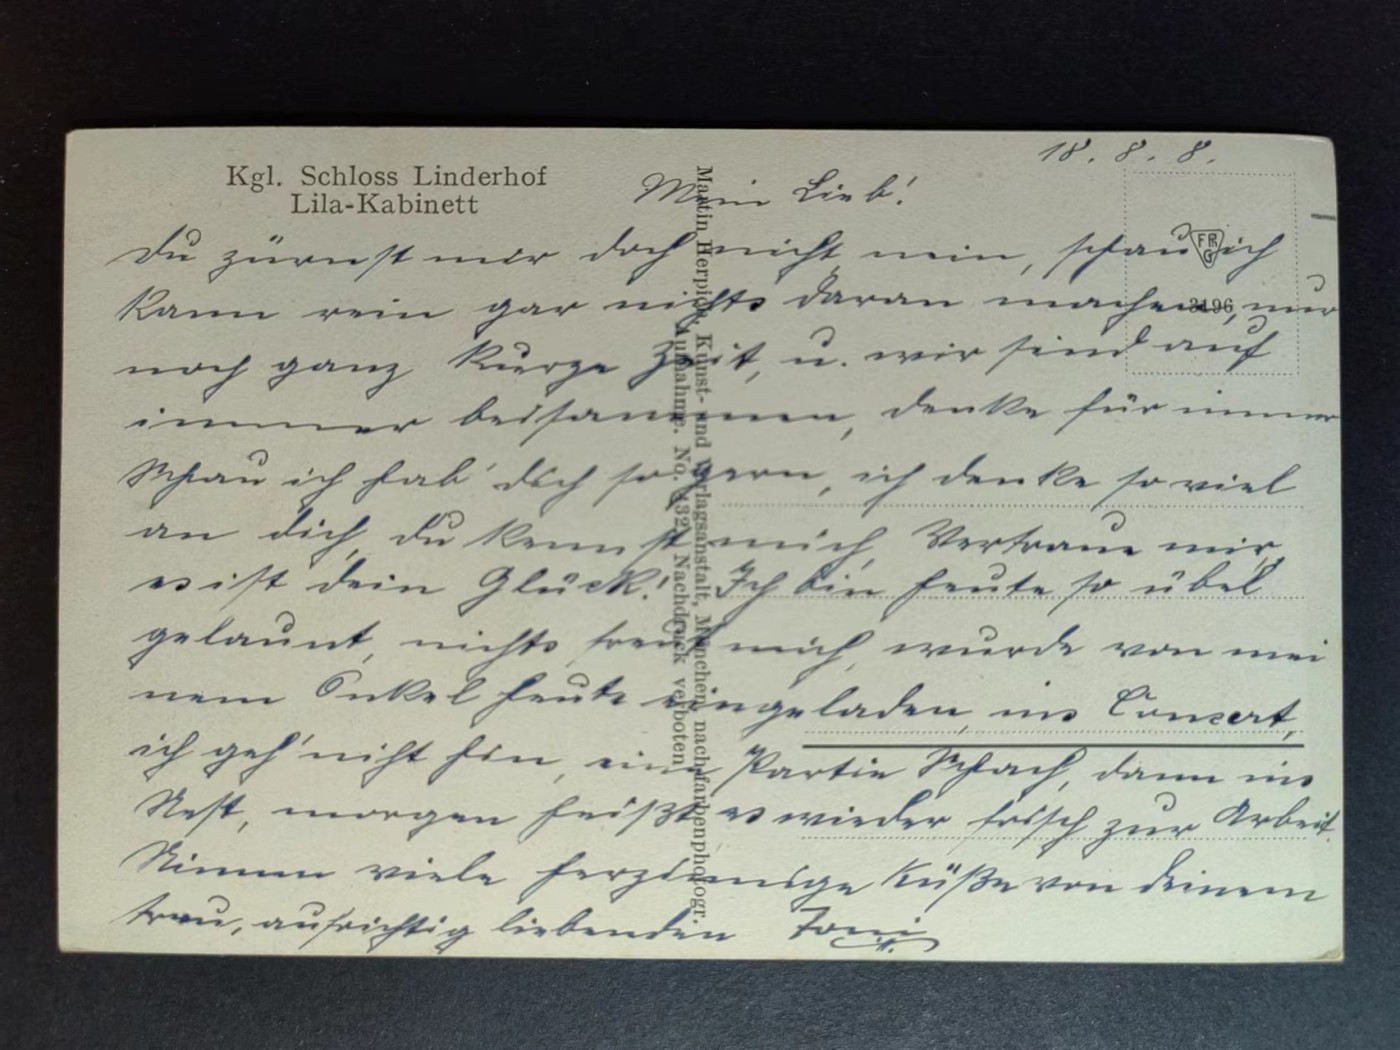 Kgl. Schloss Linderhof
Lila-Kabinett
18. 8. 8.
Mein Lieb!
Du zürnst mir doch nicht nein, schau ich
kann rein gar nichts daran machen, nur
noch ganz kurze Zeit, u. wir sind auf
immer beisammen, denke für immer
Schau ich hab' dich so gern, ich denke so viel
an dich, du kennst mich, Vertraue mir,
es ist dein Glück! Ich bin heute so übel
gelaunt, nichts freut mich, wurde von mei
nem Onkel heute eingeladen, ins Concert,
ich geh' nicht hin, eine Partie Schach, dann ins
Nest, morgen heißt es wieder frisch zur Arbeit.
Nimm viele herzinnige Küße von deinem
treu, aufrichtig liebenden Toni
Martin Herpich, Kunst- und Verlagsanstalt, München, nach Farbenphotogr.
Aufnahme. No. Nachdruck verboten.
FRG
3196